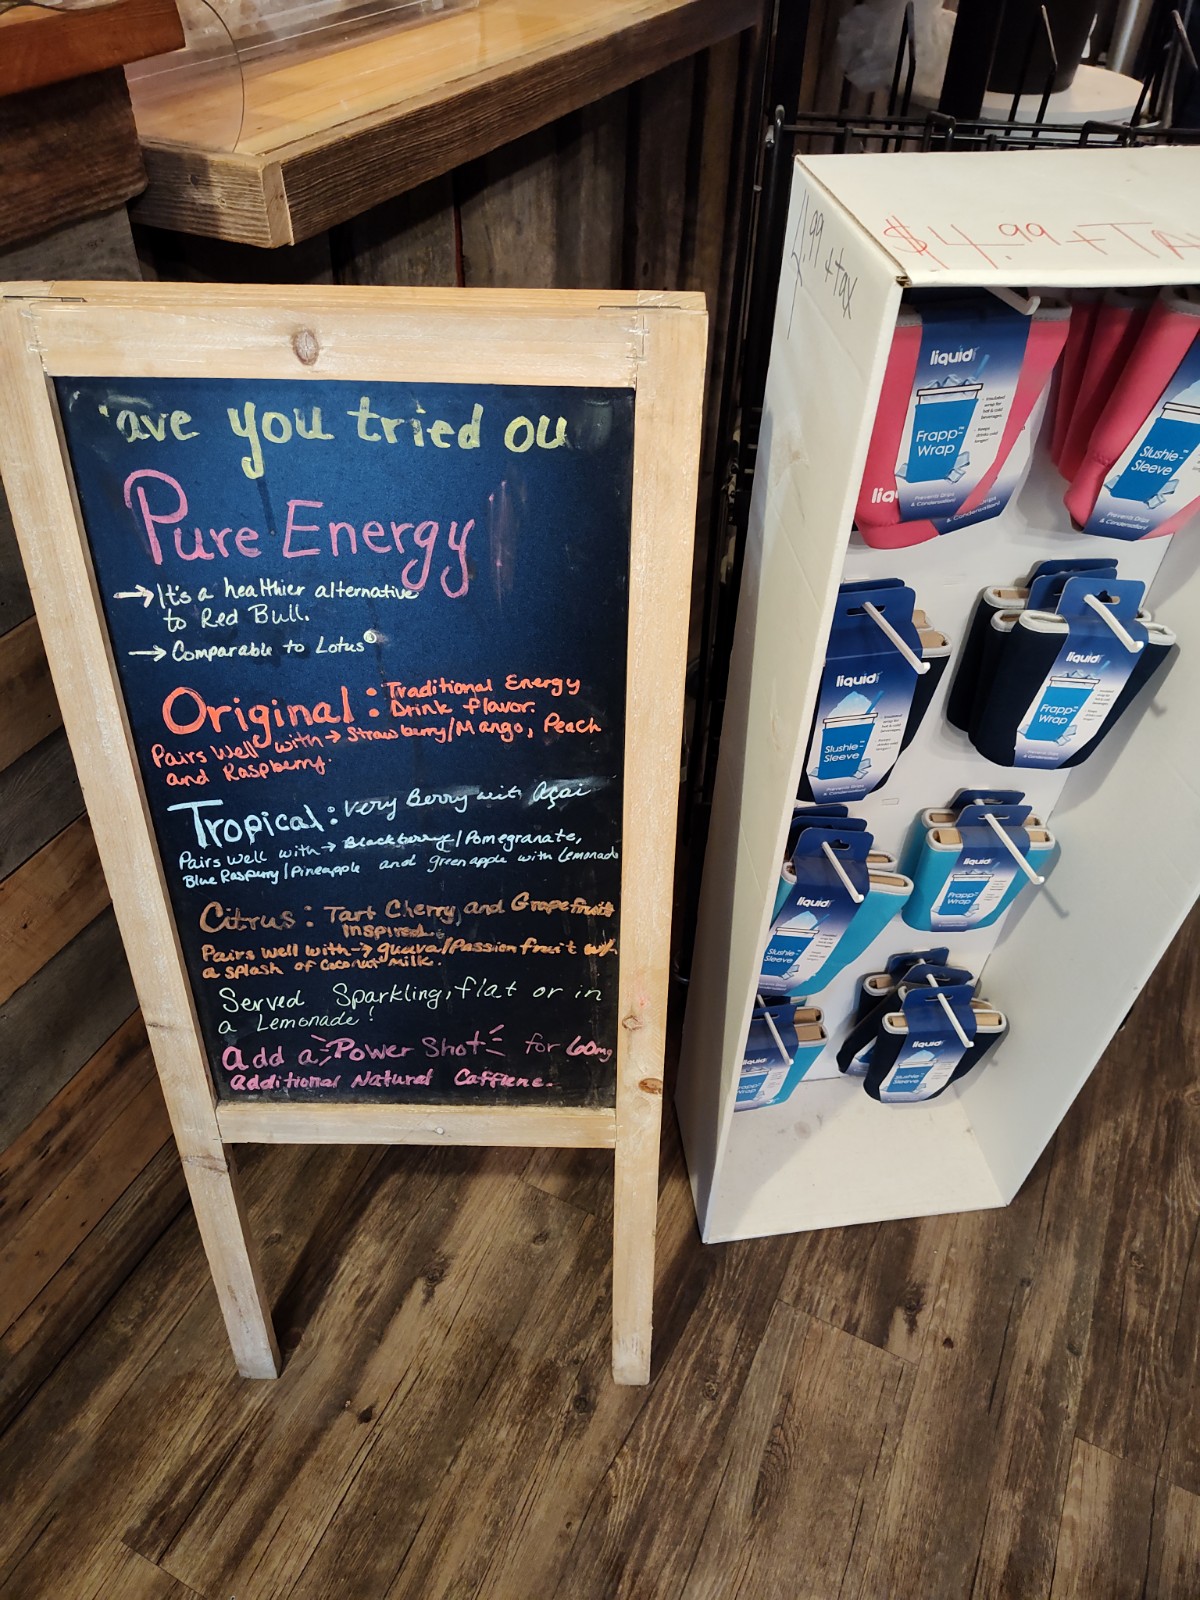 ave you tried ou
Pure Energy
→ It's a healthier alternative
to Red Bull.
→ Comparable to Lotus®
Original: Traditional Energy
Drink flavor.
Pairs well with → Strawberry/Mango, Peach
and Raspberry.
Tropical: Very Berry with Açai
Pairs well with → Blackberry/Pomegranate,
Blue Raspurry/Pineapple and green apple with Lemonade
Citrus: Tart Cherry and Grapefruit
Inspired.
Pairs well with → guava/Passion fruit w/
a splash of Coconut Milk.
Served Sparkling, flat or in
a Lemonade!
Add a Power Shot for 60mg
Additional Natural Caffiene.
4.99 + tax
$4.99 + TA
liquid
Frapp-Wrap™
Prevents Drips
& Condensation!
Slushie-Sleeve™
Prevents Drips
& Condensation!
liq
liquid
Slushie-Sleeve
liquid
Frapp-Wrap
liquid
Slushie-Sleeve
liquid
Frapp-Wrap
liquid
Frapp-Wrap
liquid
Slushie-Sleeve